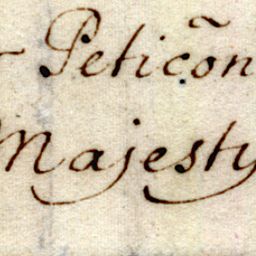 Peticõn
Majesty